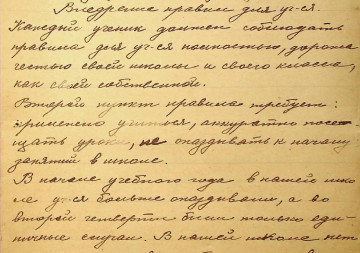 Внедрение правил для уч-ся.
Каждый ученик должен соблюдать
правила для уч-ся полностью, дорожа
честью своей школы и своего класса,
как своей собственной.
Второй пункт правила требует:
прилежно учиться, аккуратно посе-
щать уроки, не опаздывать к началу
занятий в школе.
В начале учебного года в нашей шко-
ле уч-ся больше опаздывали, а во
второй четверти были только еди-
ничные случаи. В нашей школе нет